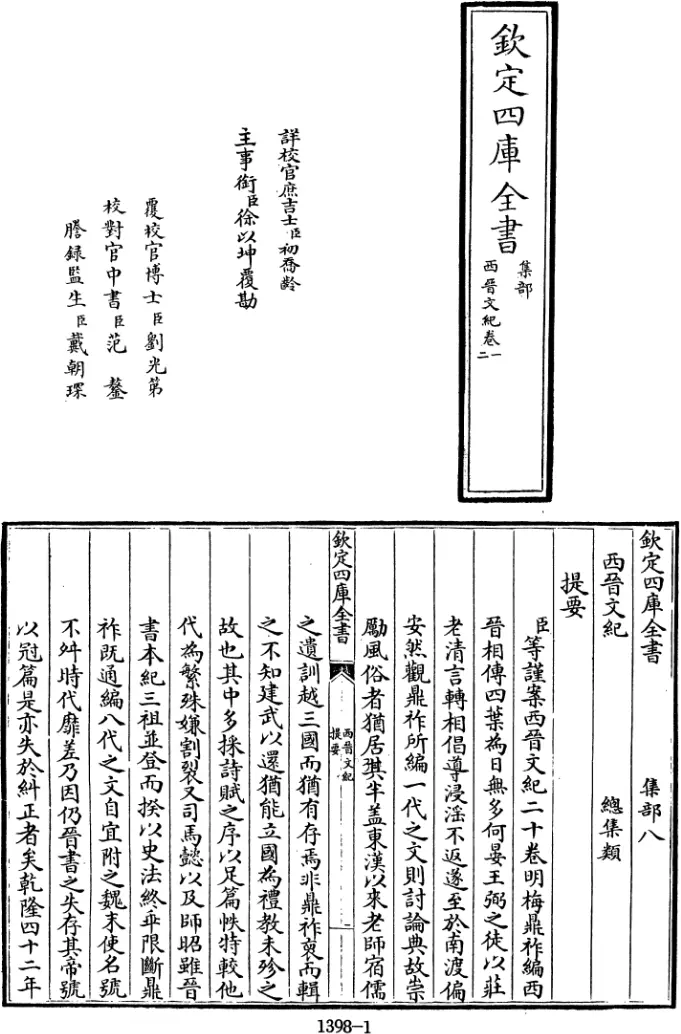 欽定四庫全書
集部
西晉文紀卷一
二
詳校官庶吉士臣初喬齡
主事銜臣徐以坤覆勘
覆校官博士臣劉光第
校對官中書臣范鏊
謄錄監生臣戴朝琛
欽定四庫全書 集部八
西晉文紀 總集類
提要
臣等謹案西晉文紀二十卷明梅鼎祚編西
晉相傳四葉為日無多何晏王弼之徒以莊
老清言轉相倡導浸淫不返遂至於南渡偏
安然觀鼎祚所編一代之文則討論典故崇
勵風俗者猶居其半蓋東漢以來老師宿儒
欽定四庫全書
西晉文紀
提要
一
之遺訓越三國而猶有存焉非鼎祚裒而輯
之不知建武以還猶能立國為禮教未殄之
故也其中多採詩賦之序以足篇帙特較他
代為繁殊嫌割裂又司馬懿以及師昭雖晉
書本紀三祖並登而揆以史法終乖限斷鼎
祚既通編八代之文自宜附之魏末使名號
不舛時代靡差乃因仍晉書之失存其帝號
以冠篇是亦失於糾正者矣乾隆四十二年
1398-1